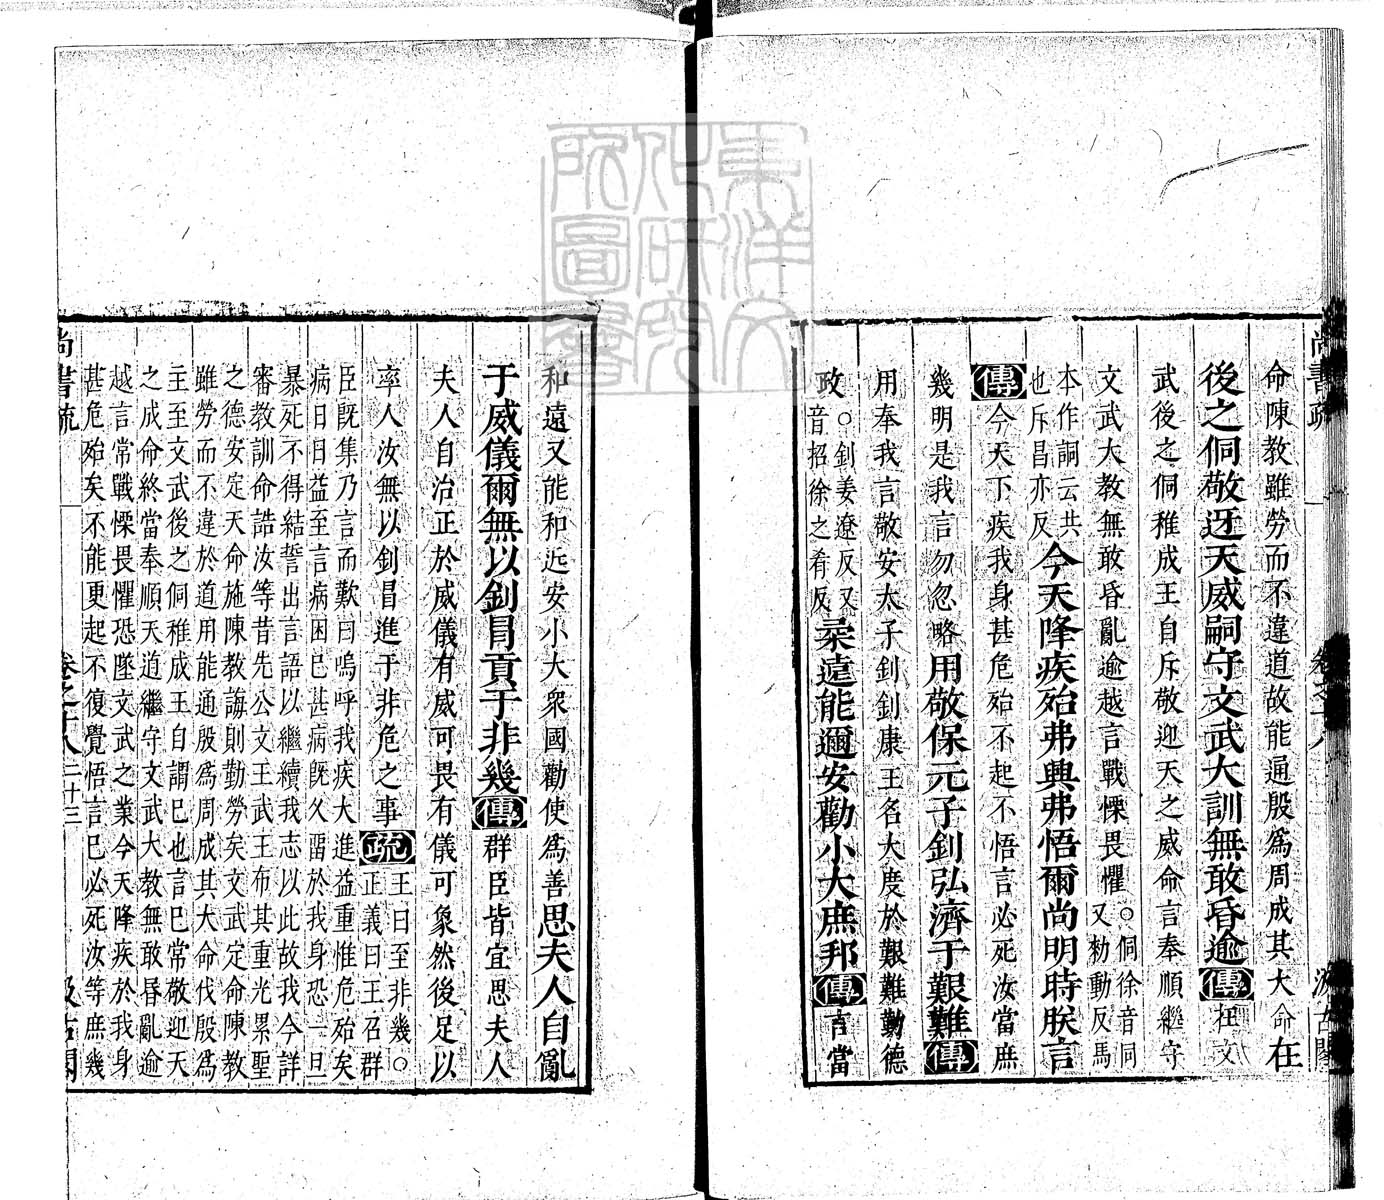 命陳教雖勞而不違道故能通殷爲周成其大命在
後之侗敬迓天威嗣守文武大訓無敢昏逾傳在文
武後之侗稚成王自斥敬迎天之威命言奉順繼守
文武大教無敢昏亂逾越言戰慄畏懼○侗徐音同
又勑動反馬
本作詷云共
也斥昌亦反
今天降疾殆弗興弗悟爾尚明時朕言
傳今天下疾我身甚危殆不起不悟言必死汝當庶
幾明是我言勿忽略用敬保元子釗弘濟于艱難傳
用奉我言敬安太子釗釗康王名大度於艱難勤德
政○釗姜遼反又
音招徐之肴反
柔遠能邇安勸小大庶邦傳言當
和遠又能和近安小大衆國勸使爲善思夫人自亂
于威儀爾無以釗冒貢于非幾傳群臣皆宜思夫人
夫人自治正於威儀有威可畏有儀可象然後足以
率人汝無以釗冒進于非危之事疏王曰至非幾○
正義曰王召群
臣既集乃言而歎曰嗚呼我疾大進益重惟危殆矣
病日日益至言病困已甚病既久留於我身恐一旦
暴死不得結誓出言語以繼續我志以此故我今詳
審教訓命誥汝等昔先公文王武王布其重光累聖
之德安定天命施陳教誨則勤勞矣文武定命陳教
雖勞而不違於道用能通殷爲周成其大命伐殷爲
主至文武後之侗稚成王自謂已也言已常敬迎天
之成命終當奉順天道繼守文武大教無敢昏亂逾
越言常戰慄畏懼恐墜文武之業今天降疾於我身
甚危殆矣不能更起不復覺悟言已必死汝等庶幾
尚書疏
卷之十八
二十三
汲古閣
東洋文
化研究
所圖書